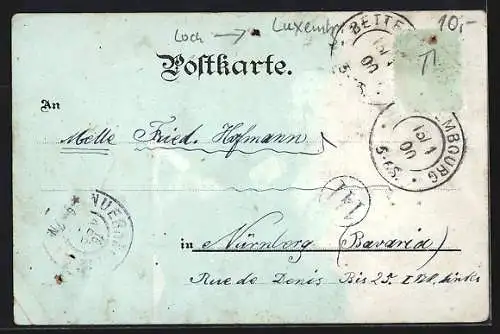 Loch → Luxemb
10,-
BETTE
13/1
00
Postkarte.
An
Melle Fried. Hofmann
MBOURG
13/1
00
5-6S
NUERN
in Nürnberg (Bavaria)
Rue de Denis Bis 25. I Etl. links